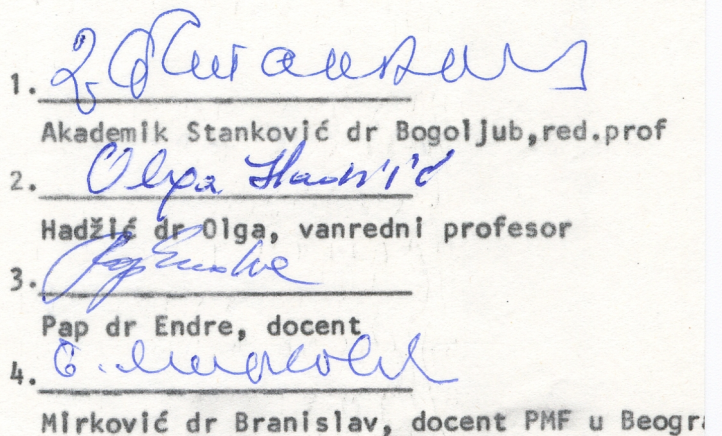 1.
Akademik Stanković dr Bogoljub,red.prof
2. Olga Hadžić
Hadžić dr Olga, vanredni profesor
3. Pap Endre
Pap dr Endre, docent
4.
Mirković dr Branislav, docent PMF u Beogra